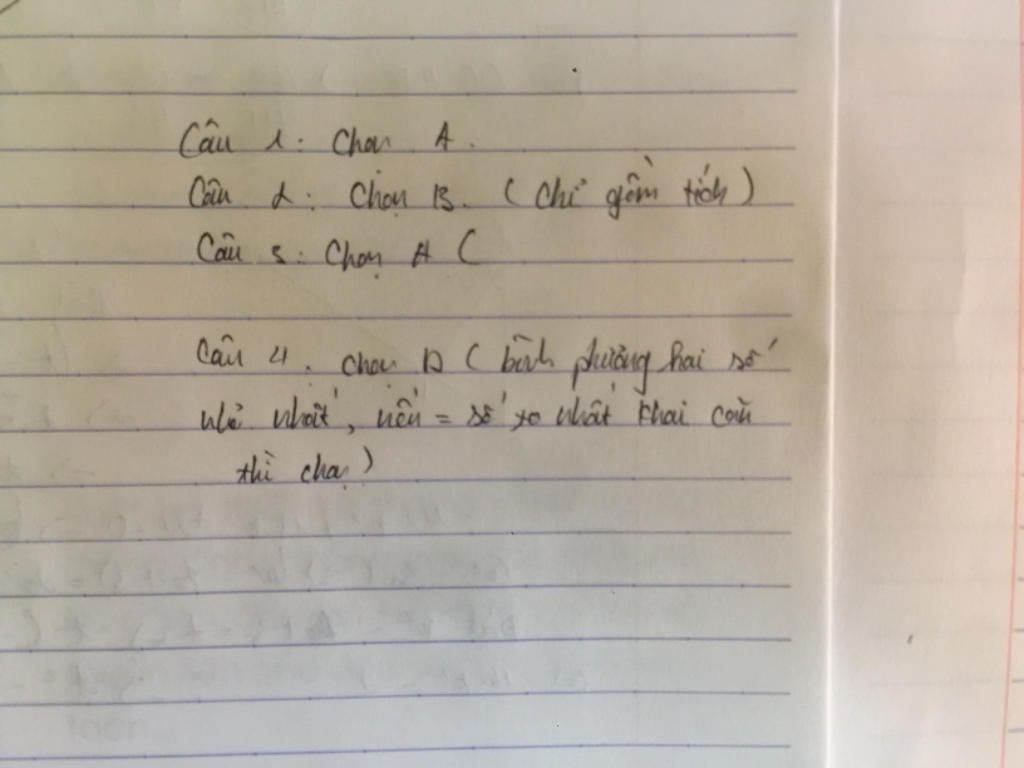 Câu 1: Chọn A.
Câu 2: Chọn B. (Chỉ gồm tích)
Câu 3: Chọn A (
Câu 4: Chọn D (bình phương hai số
nhỏ nhất, nếu = số to nhất khai căn
thì chọn)